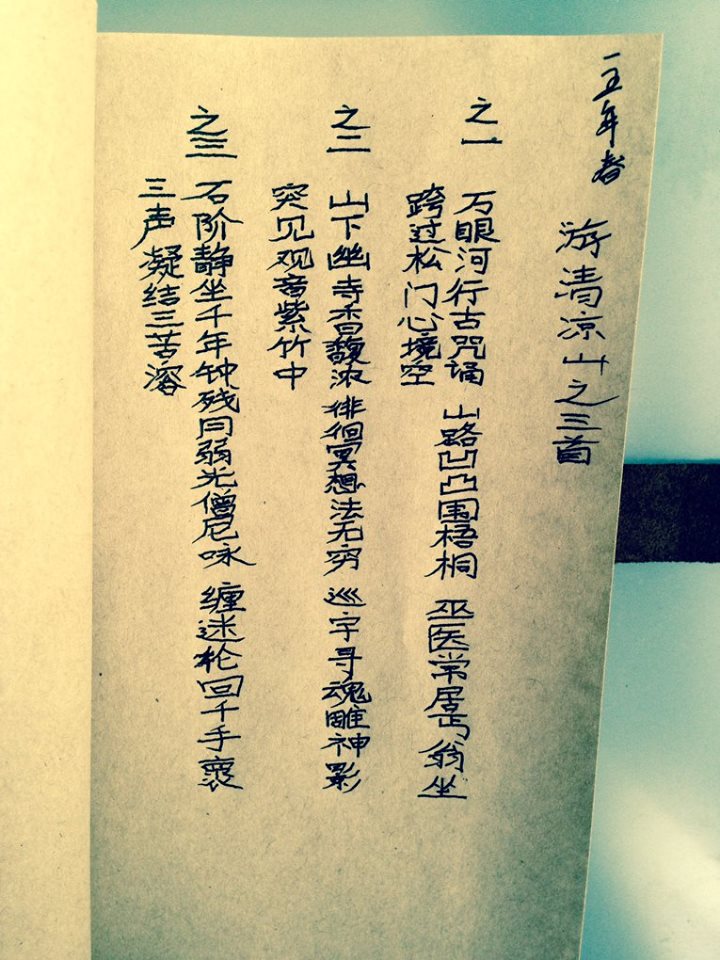 一五年春
游清凉山之三首
之一 万眼河行古咒诵 山路凹凸围梧桐 巫医常居与翁坐
跨过松门心境空
之二 山下幽寺香馥浓 徘徊冥想法无穷 巡宇寻魂雕神影
突见观音紫竹中
之三 石阶静坐千年钟 残月弱光僧尼咏 缠迷轮回千手裹
三声凝结三苦溶